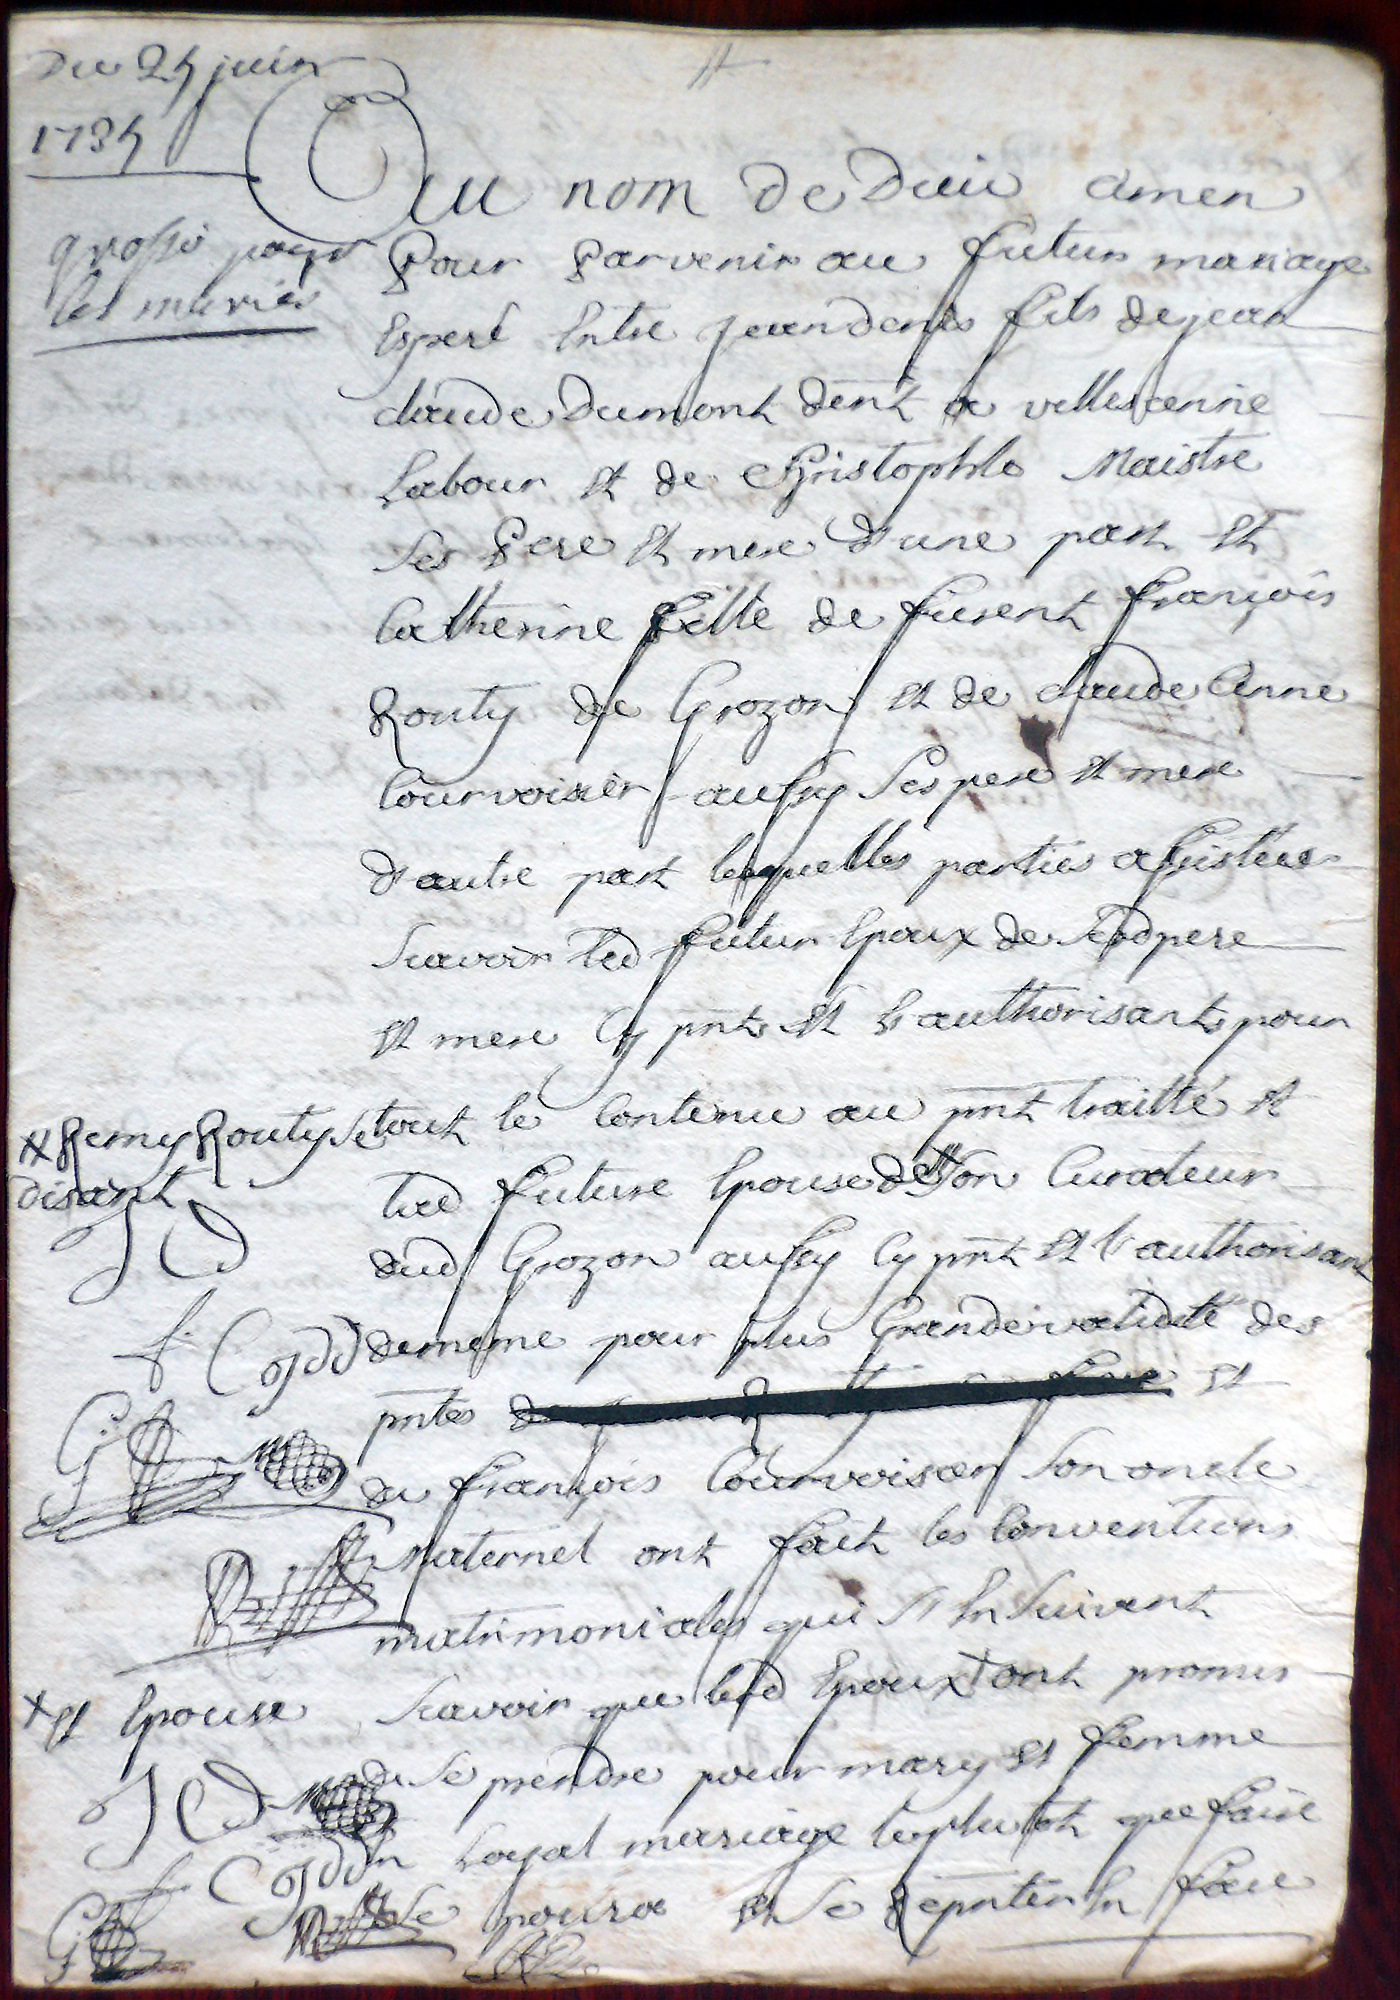 Du 24 juin
1734
Au nom de Dieu amen
grossé pour
les mariés
Pour Parvenir au futur mariage
Esperé Entre jean denis fils de jean
claude Dumont demt a villersanne
Labour et de Christophle Maistre
ses Pere et mere d'une part et
Catherine fille de furent françois
Routy de Grozon et de claude Anne
Courvoisier aussy ses pere et mere
d'autre part lesquelles parties assistées
scavoir led futur Epoux de sesd pere
et mere Cy pnts et L'authorisants pour
tout le Contenu au pnt traitté et
# Remy Routy se
disant
lad future Epouse de # son Curateur
dud Grozon aussy Cy pnt et l'authorisant
JD
f. C
demême pour plus Grande validité des
pntes et
de françois Courvoisier son oncle
Maternel ont fait les Conventions
matrimoniales qui s'Ensuivent
scavoir que lesd Epoux + ont promis
+ et Epouse
de se prendre pour mary et femme
JD
En Loyal mariage le plustot que faire
f C
se poura et se Repnter En face